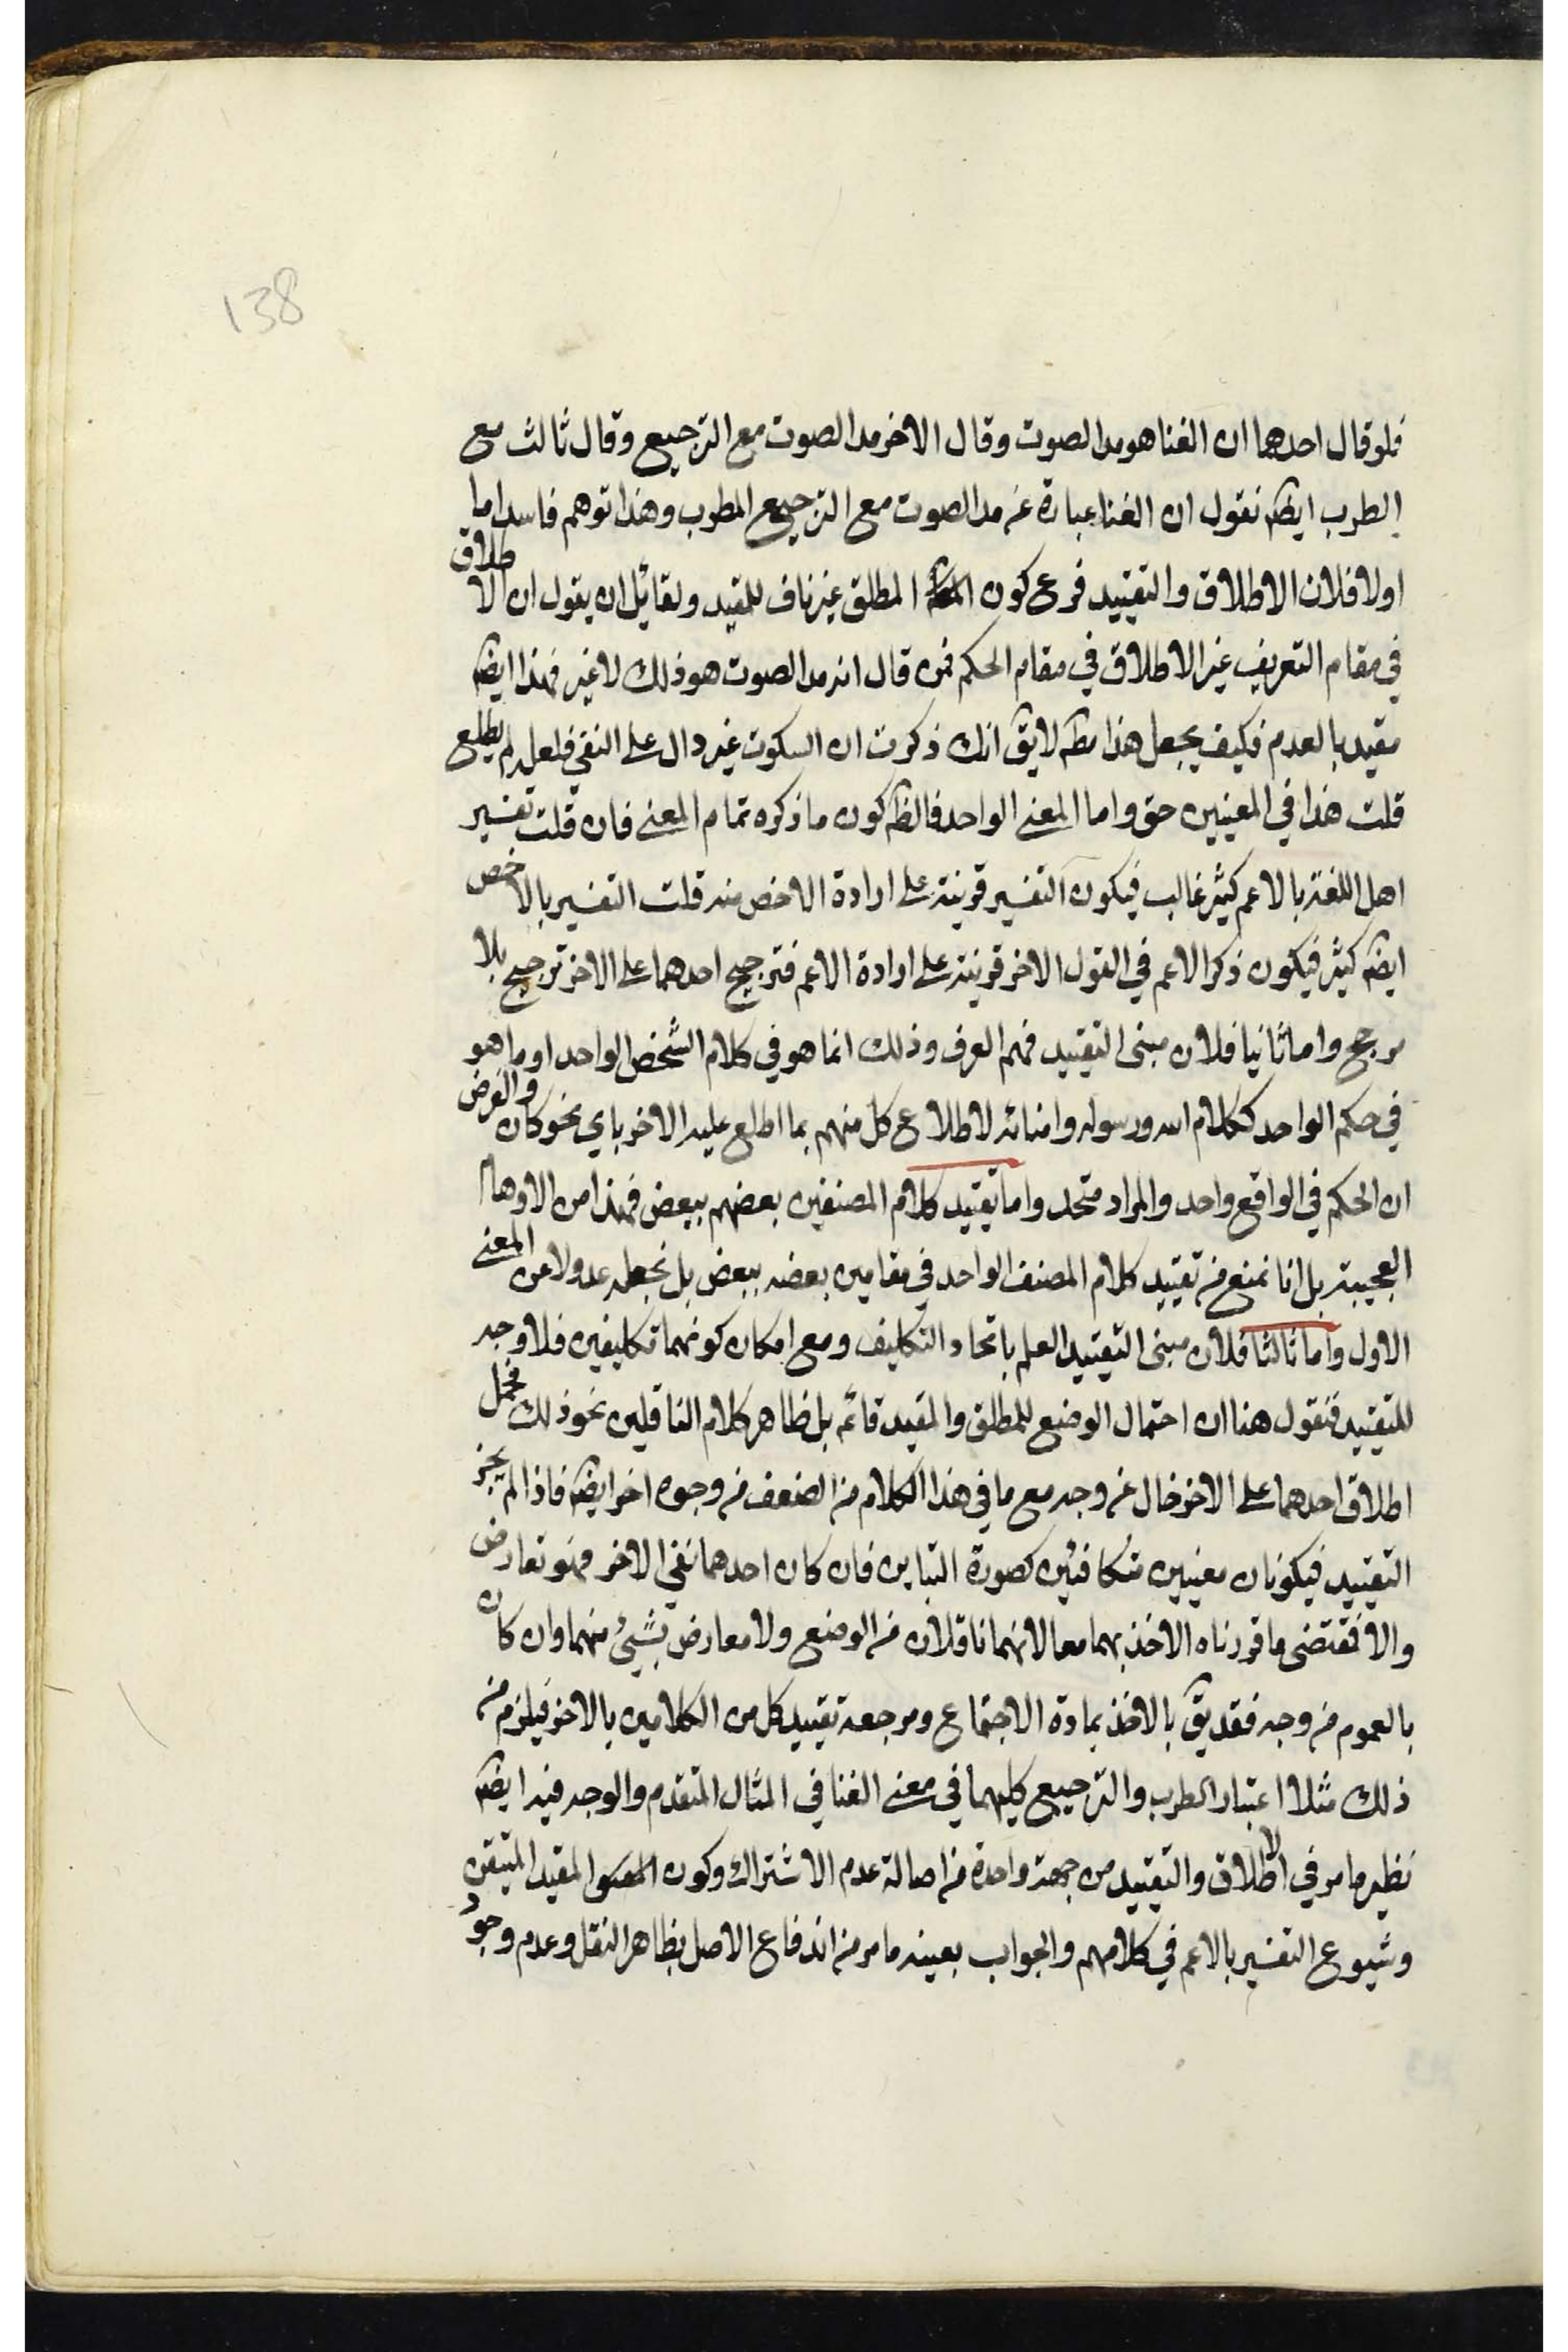 138
فلو قال احدهما ان الغنا هو مد الصوت وقال الاخر مد الصوت مع الترجيع وقال ثالث مع
الطرب ايضه نقول ان الغنا عبارة عن مد الصوت مع الترجيع المطرب وهذا توهم فاسد اما
اولا فلان الاطلاق والتقييد فرع كون المطلق غير ناف للمقيد ولقائل ان يقول ان الاطلاق
في مقام التعريف غير الاطلاق في مقام الحكم فمن قال انه مد الصوت هو ذلك لا غير فهذا ايضه
مقيد بالعدم فكيف يجعل هذا مطه لا يق انك ذكرت ان السكوت غير دال على النفي فلعله لم يطلع
قلت هذا في المعنيين حق واما المعنى الواحد فالظه كون ما ذكره تمام المعنى فان قلت تفسير
اهل اللغة بالاعم كثير غالب فيكون التفسير قرينة على ارادة الاخص منه قلت التفسير بالاخص
ايضه كثير فيكون ذكر الاعم في القول الاخر قرينة على ارادة الاعم فترجيح احدهما على الاخر ترجيح بلا
مرجح واما ثانيا فلان مبنى التقييد فهم العرف وذلك انما هو في كلام الشخص الواحد او ما هو
في حكم الواحد ككلام الله ورسوله وامنائه لاطلاع كل منهم بما اطلع عليه الاخر باي نحو كان والغرض
ان الحكم في الواقع واحد والمراد متحد واما تقييد كلام المصنفين بعضهم ببعض فهذا من الاوهام
العجيبة بل انا نمنع من تقييد كلام المصنف الواحد في مقامين بعضه ببعض بل نجعله عدولا عن المعنى
الاول واما ثالثا فلان مبنى التقييد العلم باتحاد التكليف ومع امكان كونهما تكليفين فلا وجه
للتقييد فنقول هنا ان احتمال الوضع للمطلق والمقيد قائم بل ظاهر كلام الناقلين نحو ذلك فحمل
اطلاق احدهما على الاخر خال عن وجه مع ما في هذا الكلام من الضعف من وجوه اخر ايضه فاذا لم يجز
التقييد فيكونان معنيين متكافئين كصورة التباين فان كان احدهما نفي الاخر فهو تعارض
والا فمقتضى ما قررناه الاخذ بهما معا لانهما ناقلان من الوضع ولا معارض بشيئ منهما وان كان
بالعموم من وجه فقد يق بالاخذ بمادة الاجتماع ومرجعه تقييد كل من الكلامين بالاخر فيلزم من
ذلك مثلا اعتبار الطرب والترجيع كليهما في معنى الغنا في المثال المتقدم والوجه فيه ايضه
نظير ما مر في الاطلاق والتقييد من جهة واحدة من اصالة عدم الاشتراك وكون المقيد المتيقن
وشيوع التفسير بالاعم في كلامهم والجواب بعينه ما مر من اندفاع الاصل بظاهر النقل وعدم وجود